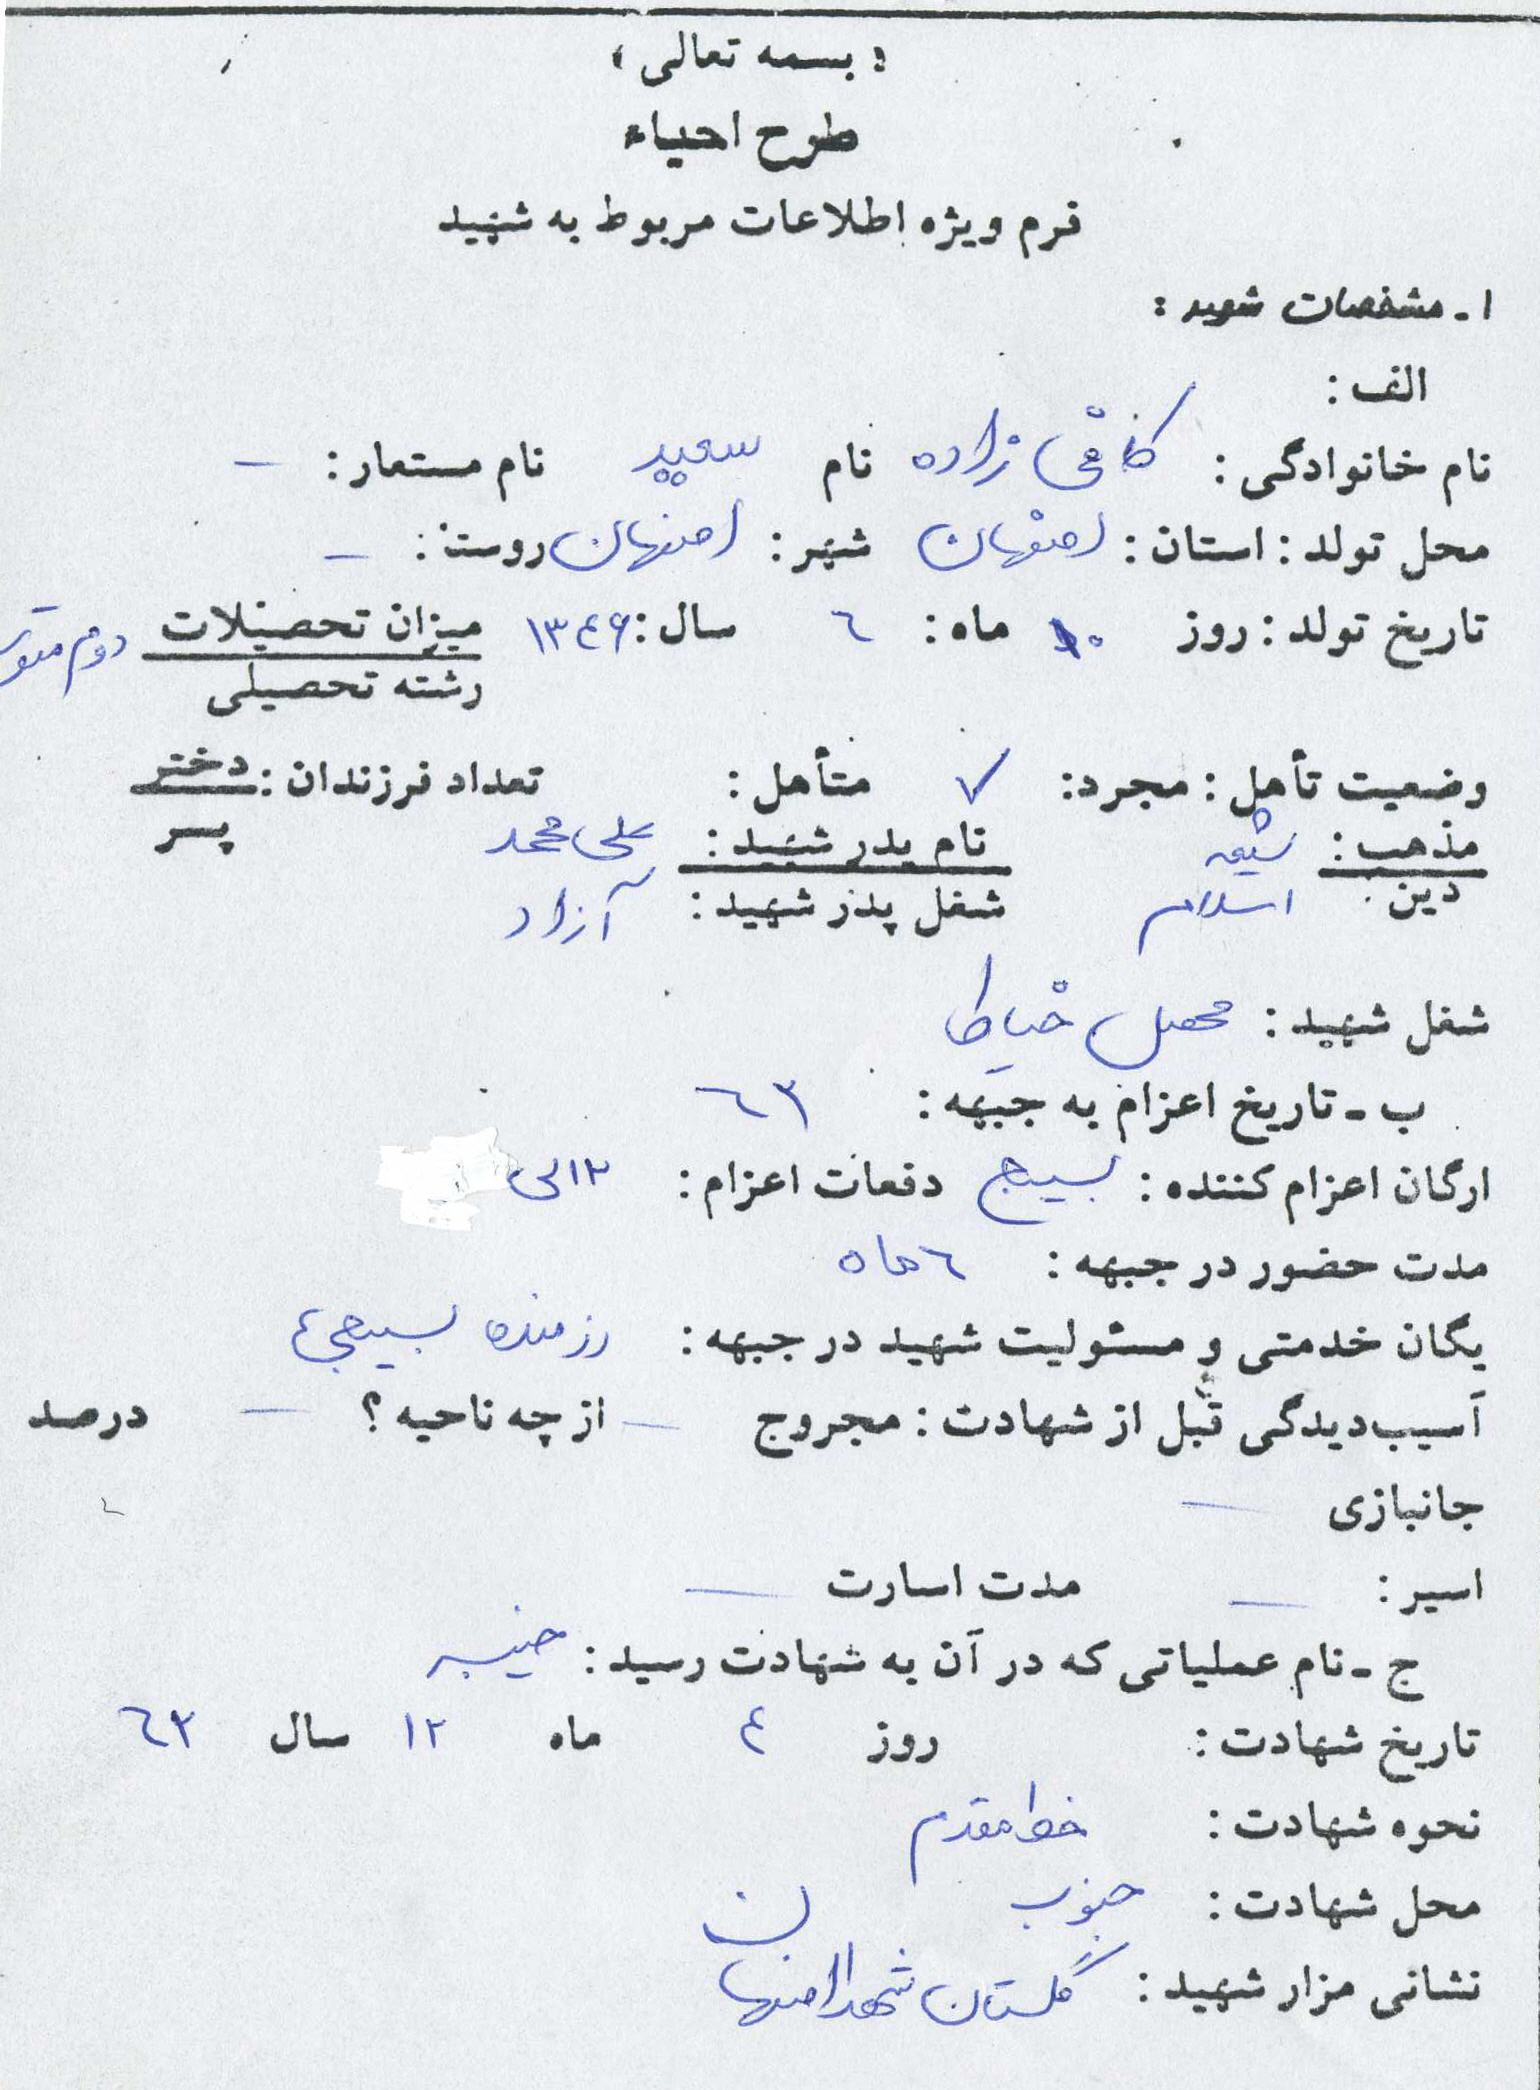 « بسمه تعالی »
طرح احیاء
فرم ویژه اطلاعات مربوط به شهید
۱ـ مشخصات شهید :
الف :
نام خانوادگی : کافی زاده نام سعید نام مستعار : –
محل تولد : استان : اصفهان شهر : اصفهان روستا : –
تاریخ تولد : روز ۱۰ ماه : ٦ سال : ۱۳٤۶ میزان تحصیلات دوم
رشته تحصیلی
وضعیت تأهل : مجرد : ✓ متأهل : تعداد فرزندان : دختر
پسر
مذهب : شیعه نام پدر شهید : علی محمد
دین : اسلام شغل پدر شهید : آزاد
شغل شهید : محصل خیاط
ب ـ تاریخ اعزام به جبهه : ٦۲
ارگان اعزام کننده : بسیج دفعات اعزام :
مدت حضور در جبهه : ٦ ماه
یگان خدمتی و مسئولیت شهید در جبهه : رزمنده بسیجی
آسیب‌دیدگی قبل از شهادت : مجروح – از چه ناحیه ؟ – درصد
جانبازی –
اسیر : – مدت اسارت –
ج ـ نام عملیاتی که در آن به شهادت رسید : خیبر
تاریخ شهادت : روز ٤ ماه ۱۲ سال ٦۲
نحوه شهادت : خط مقدم
محل شهادت : جنوب
نشانی مزار شهید : گلستان شهدا اصفهان